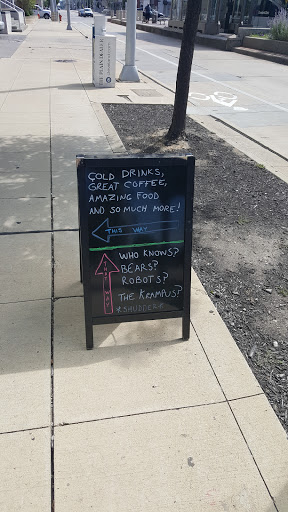 THE PLAIN DEALER
COLD DRINKS,
GREAT COFFEE,
AMAZING FOOD
AND SO MUCH MORE!
THIS WAY
WHO KNOWS?
BEARS?
ROBOTS?
THE KRAMPUS?
*SHUDDER*
THIS WAY